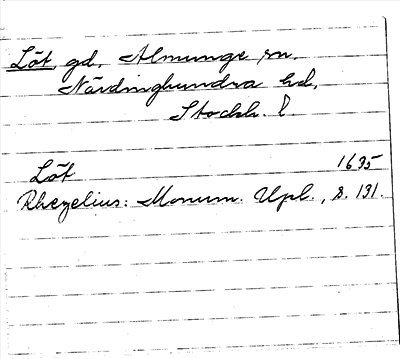 Löt, gd, Almunge sn.
Närdinghundra hd,
Stockh. l.
Löt 1635
Rhezelius: Monum. Upl., s. 131.